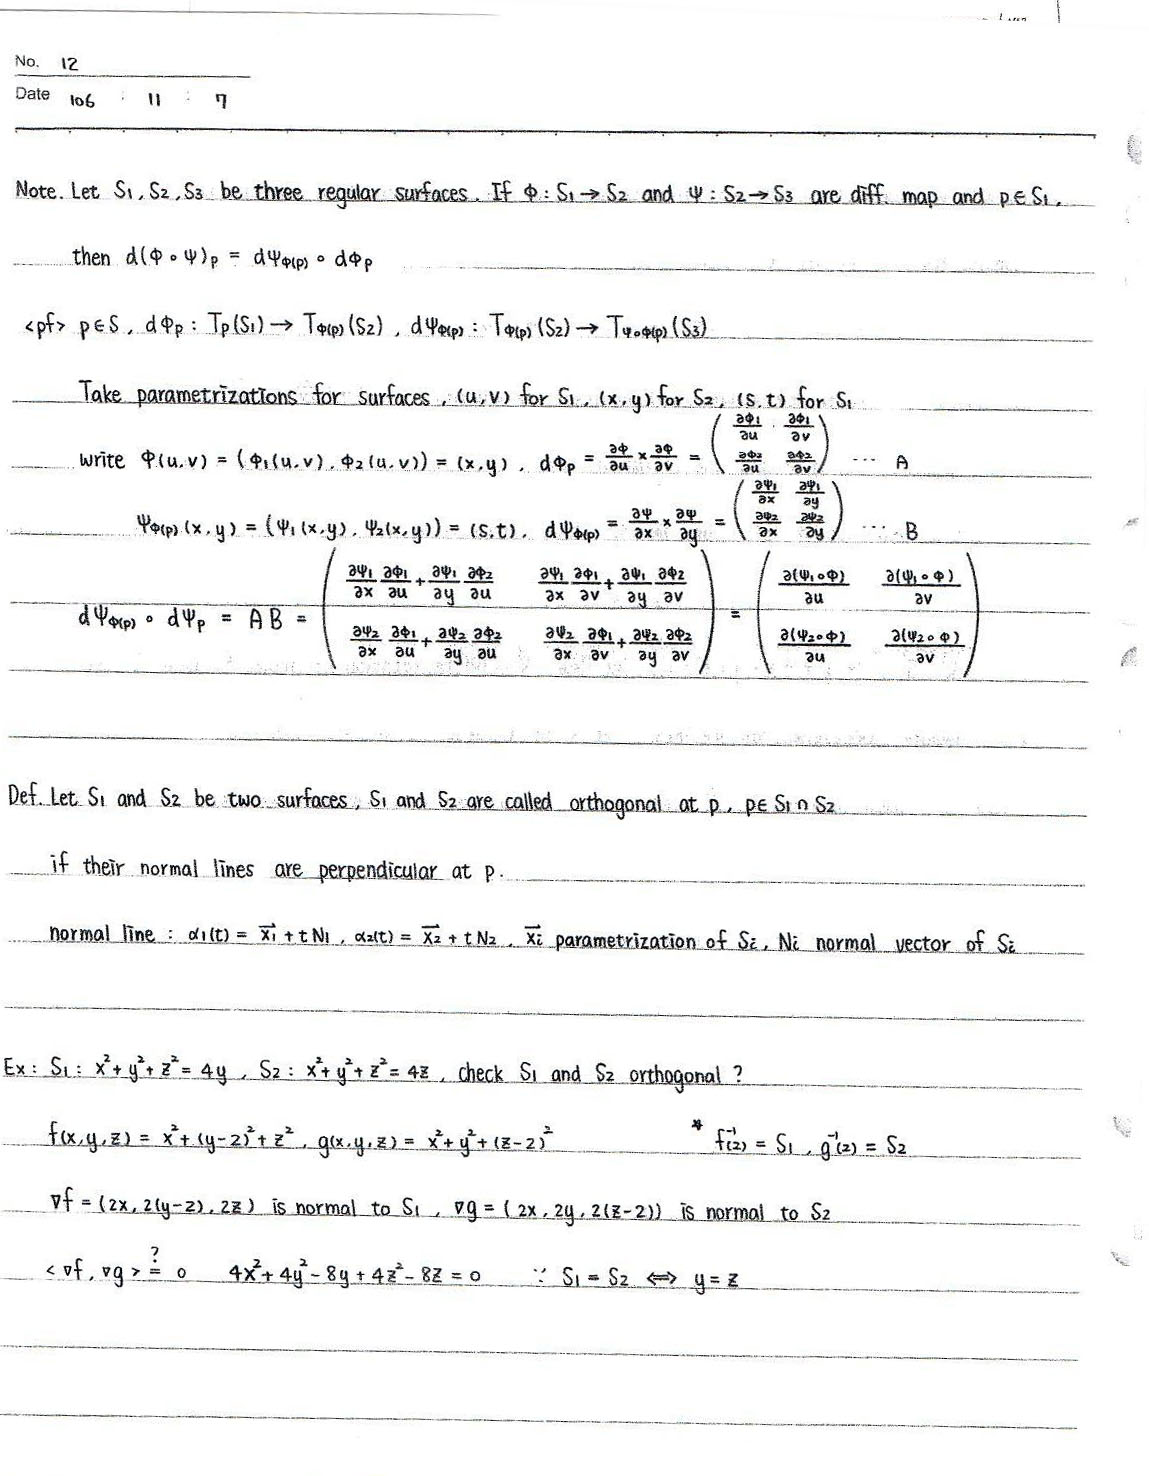 No. 12
Date 106 : 11 : 7
Note. Let S₁, S₂, S₃ be three regular surfaces. If Φ : S₁ → S₂ and Ψ : S₂ → S₃ are diff. map and p ∈ S₁,
then d(Φ∘Ψ)ₚ = dΨ_Φ(p) ∘ dΦₚ
<pf> p ∈ S, dΦₚ : Tₚ(S₁) → T_Φ(p)(S₂), dΨ_Φ(p) : T_Φ(p)(S₂) → T_Ψ∘Φ(p)(S₃)
Take parametrizations for surfaces, (u,v) for S₁, (x,y) for S₂, (s,t) for S₁
write Φ(u,v) = (Φ₁(u,v), Φ₂(u,v)) = (x,y), dΦₚ = ∂Φ/∂u × ∂Φ/∂v = (∂Φ₁/∂u ∂Φ₁/∂v ; ∂Φ₂/∂u ∂Φ₂/∂v) ... A
Ψ_Φ(p)(x,y) = (Ψ₁(x,y), Ψ₂(x,y)) = (s,t), dΨ_Φ(p) = ∂Ψ/∂x × ∂Ψ/∂y = (∂Ψ₁/∂x ∂Ψ₁/∂y ; ∂Ψ₂/∂x ∂Ψ₂/∂y) ... B
dΨ_Φ(p) ∘ dΨₚ = AB = (∂Ψ₁/∂x ∂Φ₁/∂u + ∂Ψ₁/∂y ∂Φ₂/∂u  ∂Ψ₁/∂x ∂Φ₁/∂v + ∂Ψ₁/∂y ∂Φ₂/∂v ; ∂Ψ₂/∂x ∂Φ₁/∂u + ∂Ψ₂/∂y ∂Φ₂/∂u  ∂Ψ₂/∂x ∂Φ₁/∂v + ∂Ψ₂/∂y ∂Φ₂/∂v) = (∂(Ψ₁∘Φ)/∂u ∂(Ψ₁∘Φ)/∂v ; ∂(Ψ₂∘Φ)/∂u ∂(Ψ₂∘Φ)/∂v)
Def. Let S₁ and S₂ be two surfaces, S₁ and S₂ are called orthogonal at p, p ∈ S₁ ∩ S₂
if their normal lines are perpendicular at p.
normal line : α₁(t) = x⃗₁ + tN₁, α₂(t) = x⃗₂ + tN₂, x⃗ᵢ parametrization of Sᵢ, Nᵢ normal vector of Sᵢ
Ex : S₁ : x²+y²+z² = 4y, S₂ : x²+y²+z² = 4z, check S₁ and S₂ orthogonal ?
f(x,y,z) = x²+(y-2)²+z², g(x,y,z) = x²+y²+(z-2)² * f⁻¹(2) = S₁, g⁻¹(2) = S₂
∇f = (2x, 2(y-2), 2z) is normal to S₁, ∇g = (2x, 2y, 2(z-2)) is normal to S₂
<∇f, ∇g> ?= 0 4x²+4y²-8y+4z²-8z = 0 ∵ S₁ = S₂ ⟺ y = z